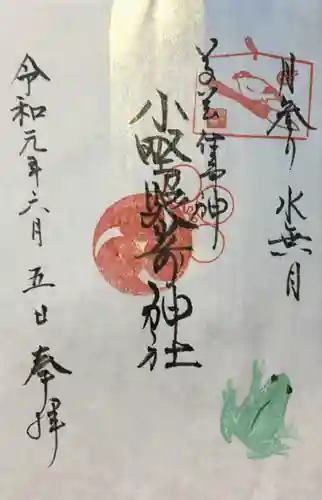 月参り 水無月
芸能信善神
小野照崎神社
令和元年六月五日 奉拝